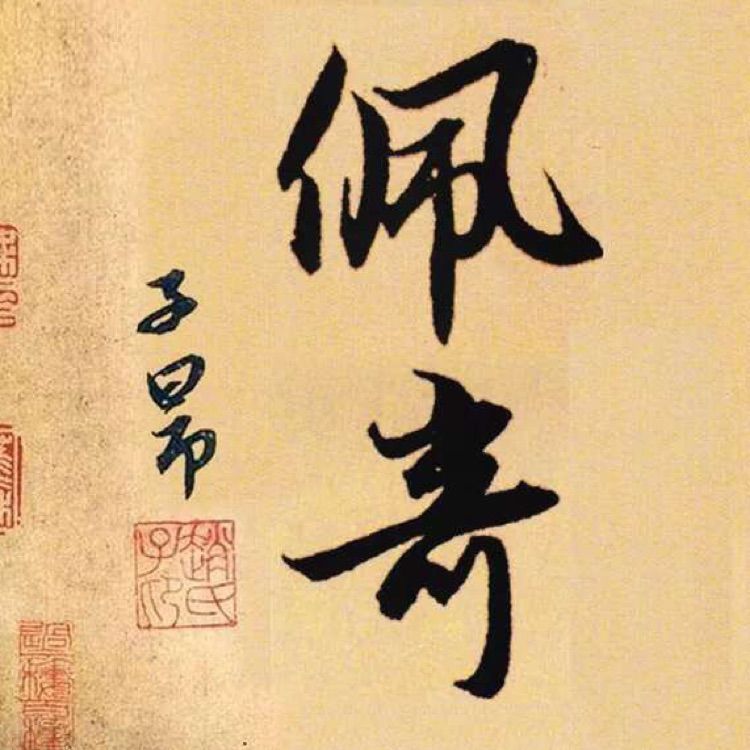 佩奇
子昂
趙氏子昂